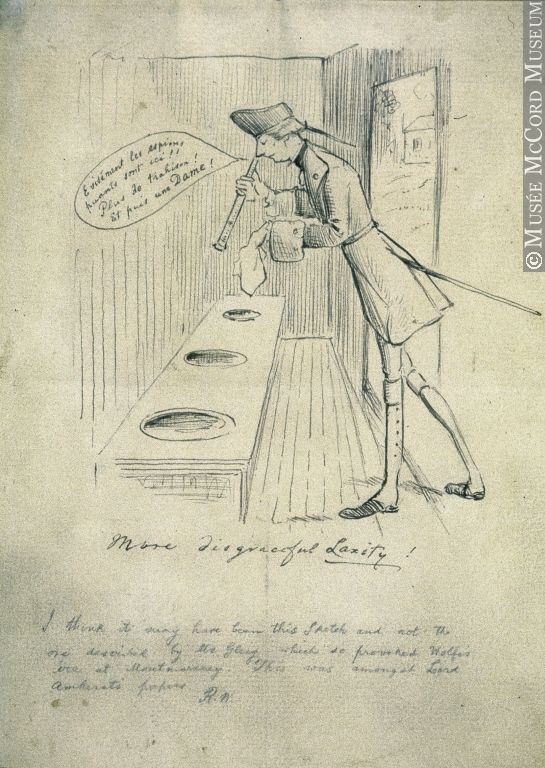 Evidement les espions
puants sont ici!!
Plus de trahison!
Et puis une Dame!
More disgraceful Laxity!
I think it may have been this Sketch and not the
one described by Mr Gleig which so provoked Wolfes
ire at Montmorency. This was amongst Lord
Amhersts papers
R.W.
© MUSÉE MCCORD MUSEUM